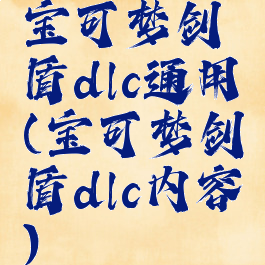 宝可梦剑
盾dlc通用
(宝可梦剑
盾dlc内容
)